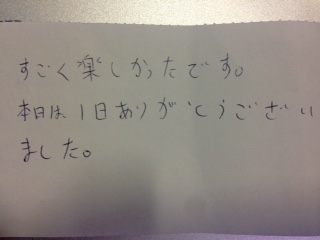 すごく楽しかったです。
本日は、1日ありがとうござい
ました。